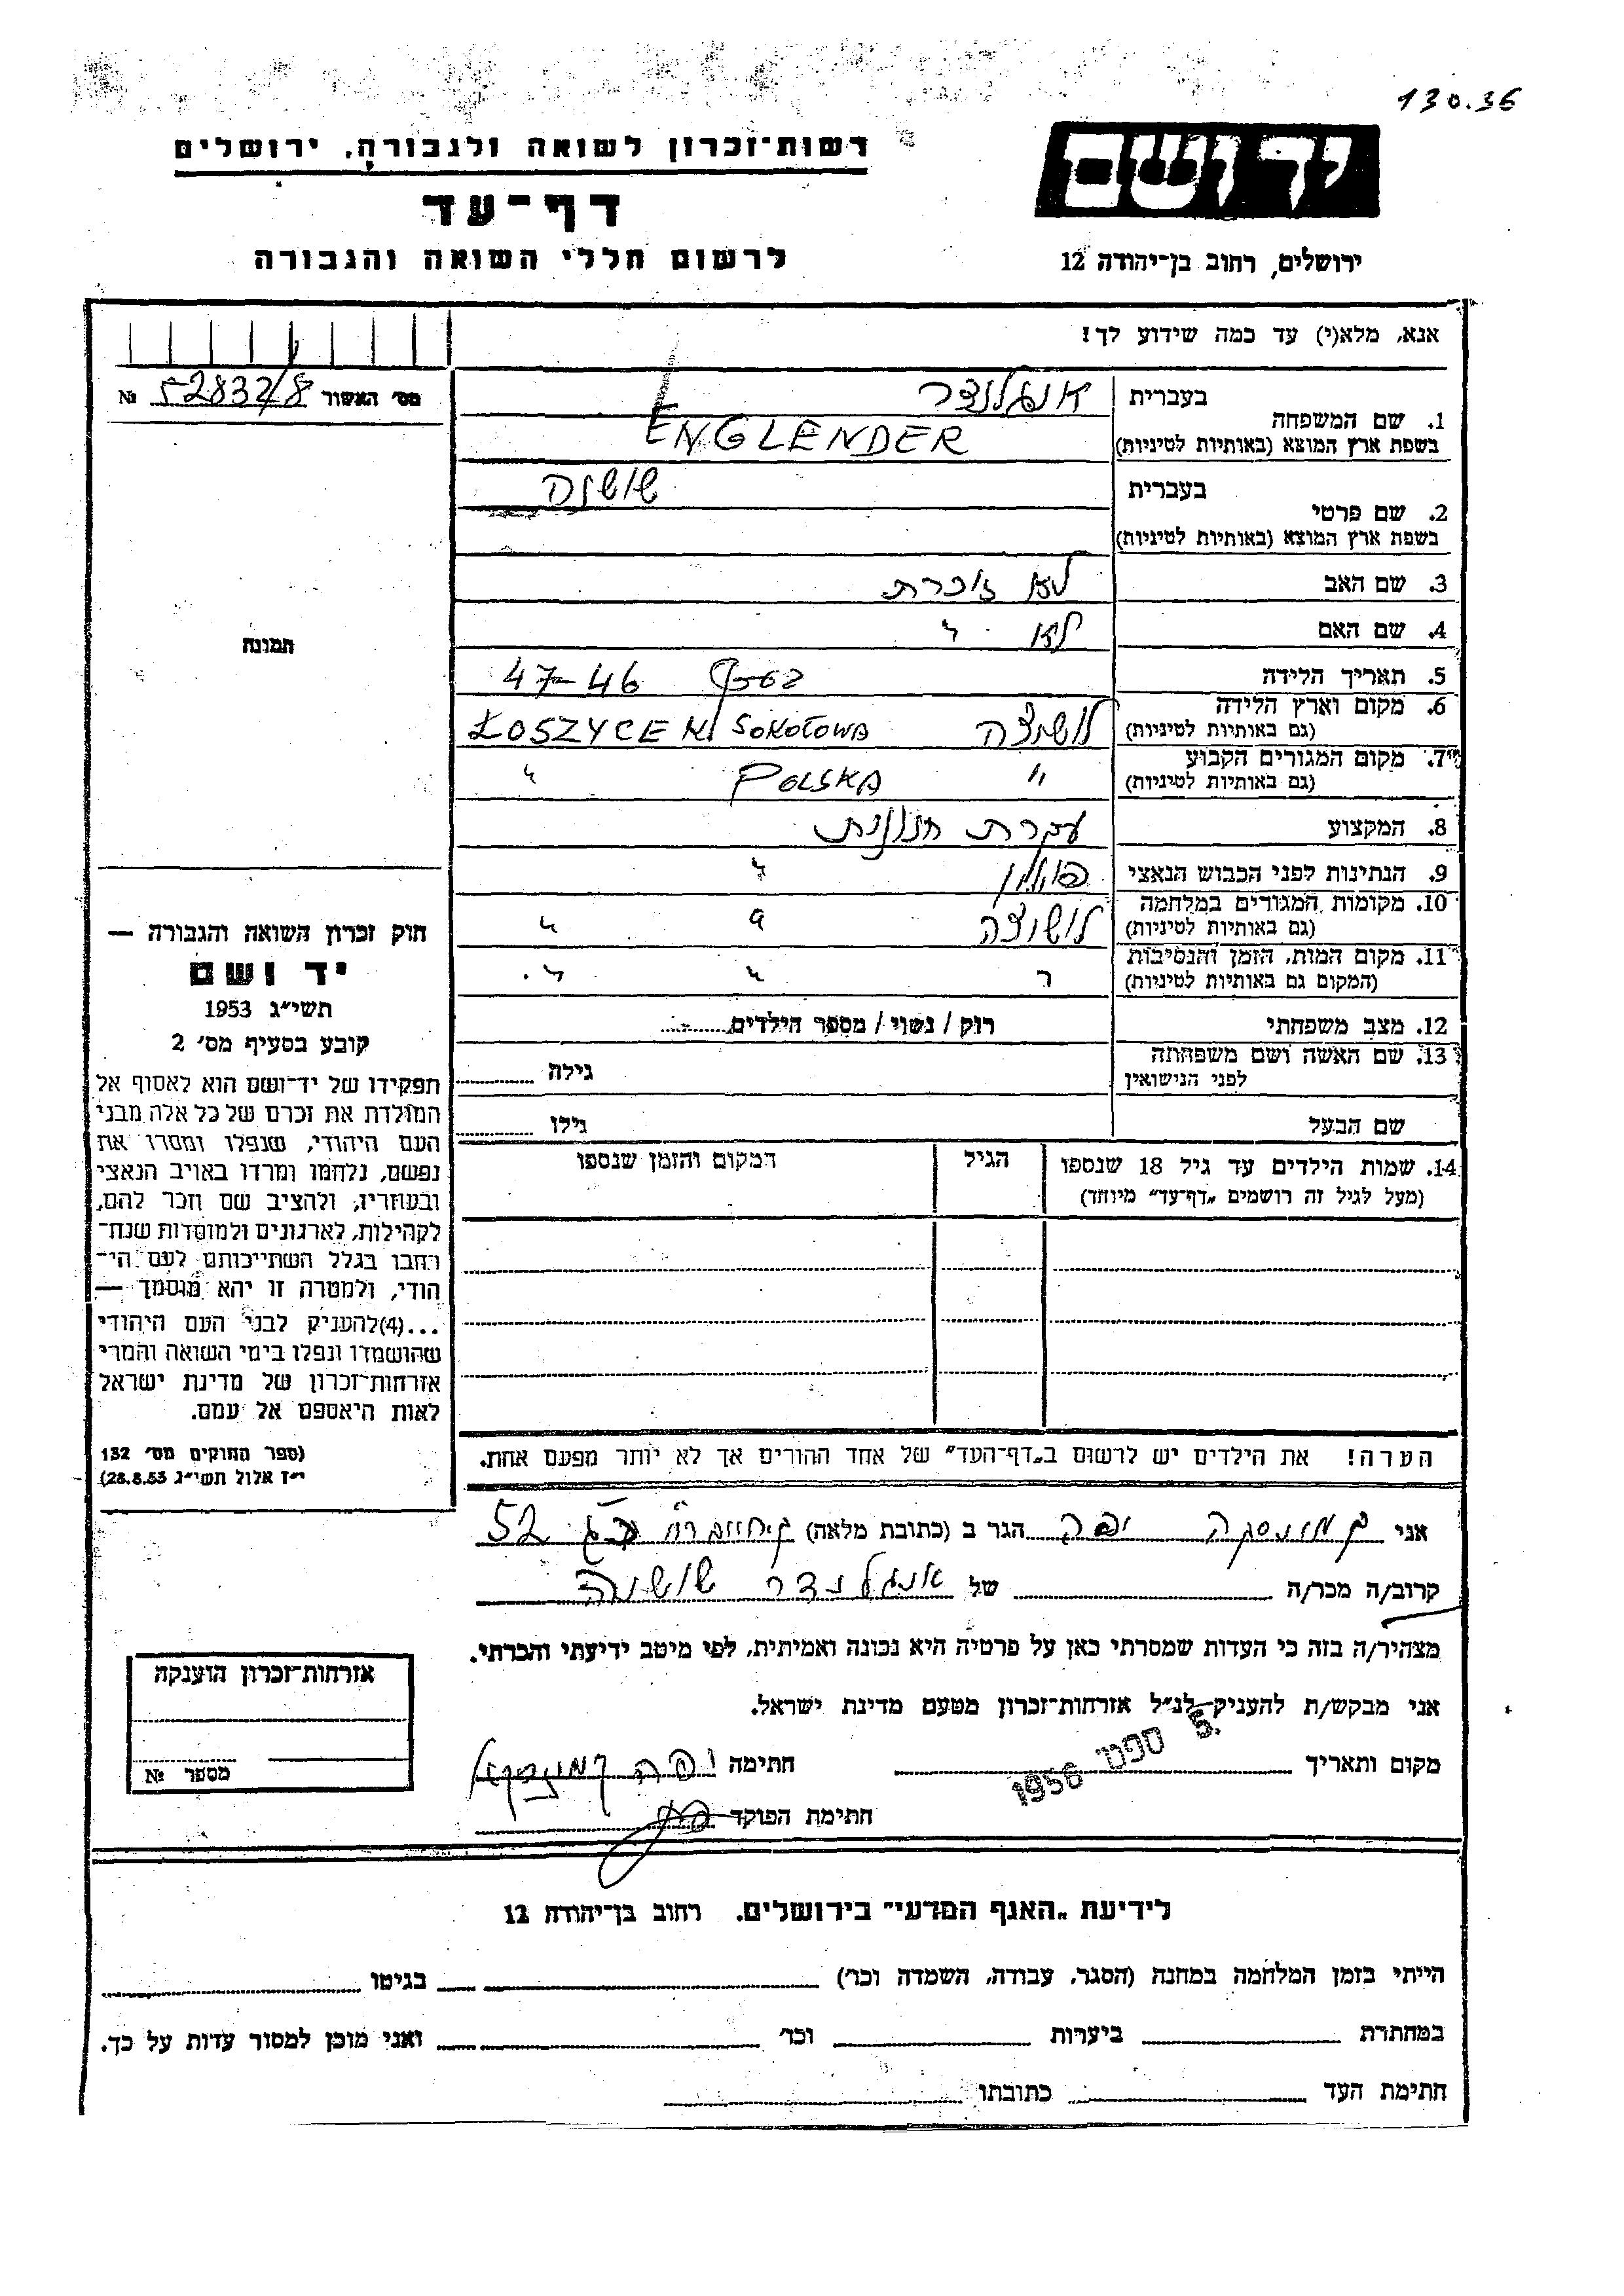 130.36
רשות־זכרון לשואה ולגבורה, ירושלים
יד ושם
דף־עד
לרשום חללי השואה והגבורה
ירושלים, רחוב בן־יהודה 12
אנא, מלא(י) עד כמה שידוע לך!
מס׳ האשור 52832/8 №
1. שם המשפחה
בעברית אנגלנדר
בשפת ארץ המוצא (באותיות לטיניות) ENGLENDER
2. שם פרטי
בעברית שושנה
בשפת ארץ המוצא (באותיות לטיניות)
3. שם האב לא זוכרת
4. שם האם לא "
5. תאריך הלידה 47-46
6. מקום וארץ הלידה
(גם באותיות לטיניות) לושיצה ŁOSZYCE N/ SOKOŁOWA
7. מקום המגורים הקבוע
(גם באותיות לטיניות) " POLSKA "
8. המקצוע עקרת
9. הנתינות לפני הכבוש הנאצי פולין "
10. מקומות המגורים במלחמה
(גם באותיות לטיניות) לושיצה " "
11. מקום המות, הזמן והנסיבות
(המקום גם באותיות לטיניות) " " "
12. מצב משפחתי רוק / נשוי / מספר הילדים
13. שם האשה ושם משפחתה
לפני הנישואין גילה
שם הבעל גילו
14. שמות הילדים עד גיל 18 שנספו הגיל המקום והזמן שנספו
(מעל לגיל זה רושמים „דף־עד״ מיוחד)
הערה! את הילדים יש לרשום ב„דף־העד״ של אחד ההורים אך לא יותר מפעם אחת.
תמונה
חוק זכרון השואה והגבורה —
יד ושם
תשי״ג 1953
קובע בסעיף מס׳ 2
תפקידו של יד־ושם הוא לאסוף אל
המולדת את זכרם של כל אלה מבני
העם היהודי, שנפלו ומסרו את
נפשם, נלחמו ומרדו באויב הנאצי
ובעוזריו, ולהציב שם וזכר להם,
לקהילות, לארגונים ולמוסדות שנח־
רבו בגלל השתייכותם לעם הי־
הודי, ולמטרה זו יהא מוסמך —
...(4)להעניק לבני העם היהודי
שהושמדו ונפלו בימי השואה והמרי
אזרחות־זכרון של מדינת ישראל
לאות היאספם אל עמם.
(ספר החוקים מס׳ 132
י״ז אלול תשי״ג 28.8.53)
אני יפה הגר ב (כתובת מלאה) 52
קרוב/ה מכר/ה של אנגלנדר שושנה
מצהיר/ה בזה כי העדות שמסרתי כאן על פרטיה היא נכונה ואמיתית, לפי מיטב ידיעתי והכרתי.
אני מבקש/ת להעניק לנ״ל אזרחות־זכרון מטעם מדינת ישראל.
מקום ותאריך 5. ספט׳ 1956 חתימה יפה
חתימת הפוקד
אזרחות־זכרון הוענקה
מספר №
לידיעת „האגף המדעי״ בירושלים. רחוב בן־יהודה 12
הייתי בזמן המלחמה במחנה (הסגר, עבודה, השמדה וכר׳) בגיטו
במחתרת ביערות וכר׳ ואני מוכן למסור עדות על כך.
חתימת העד כתובתו